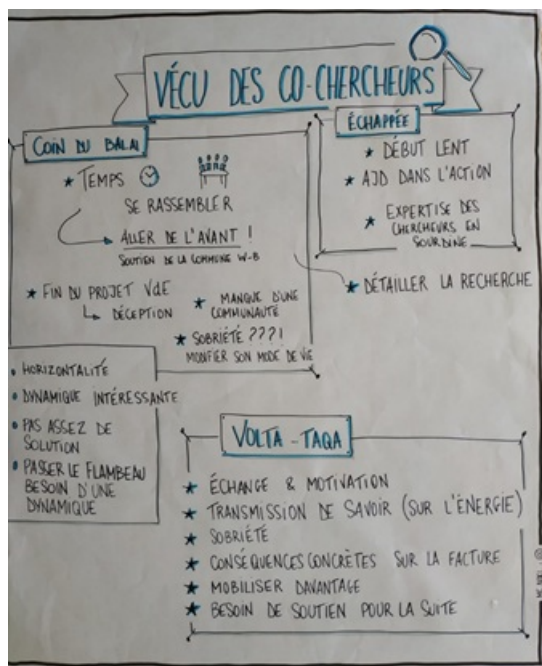 VÉCU DES CO-CHERCHEURS
COIN DU BALAI
★ TEMPS
SE RASSEMBLER
ALLER DE L'AVANT !
SOUTIEN DE LA COMMUNE W-B
★ FIN DU PROJET VdE
DÉCEPTION
★ MANQUE D'UNE
COMMUNAUTÉ
★ SOBRIÉTÉ ???!
MODIFIER SON MODE DE VIE
• HORIZONTALITÉ
• DYNAMIQUE INTÉRESSANTE
• PAS ASSEZ DE
SOLUTION
• PASSER LE FLAMBEAU
BESOIN D'UNE
DYNAMIQUE
ÉCHAPPÉE
★ DÉBUT LENT
★ AJD DANS L'ACTION
★ EXPERTISE DES
CHERCHEURS EN
SOURDINE
★ DÉTAILLER LA RECHERCHE
VOLTA-TAQA
★ ÉCHANGE & MOTIVATION
★ TRANSMISSION DE SAVOIR (SUR L'ÉNERGIE)
★ SOBRIÉTÉ
★ CONSÉQUENCES CONCRÈTES SUR LA FACTURE
★ MOBILISER DAVANTAGE
★ BESOIN DE SOUTIEN POUR LA SUITE